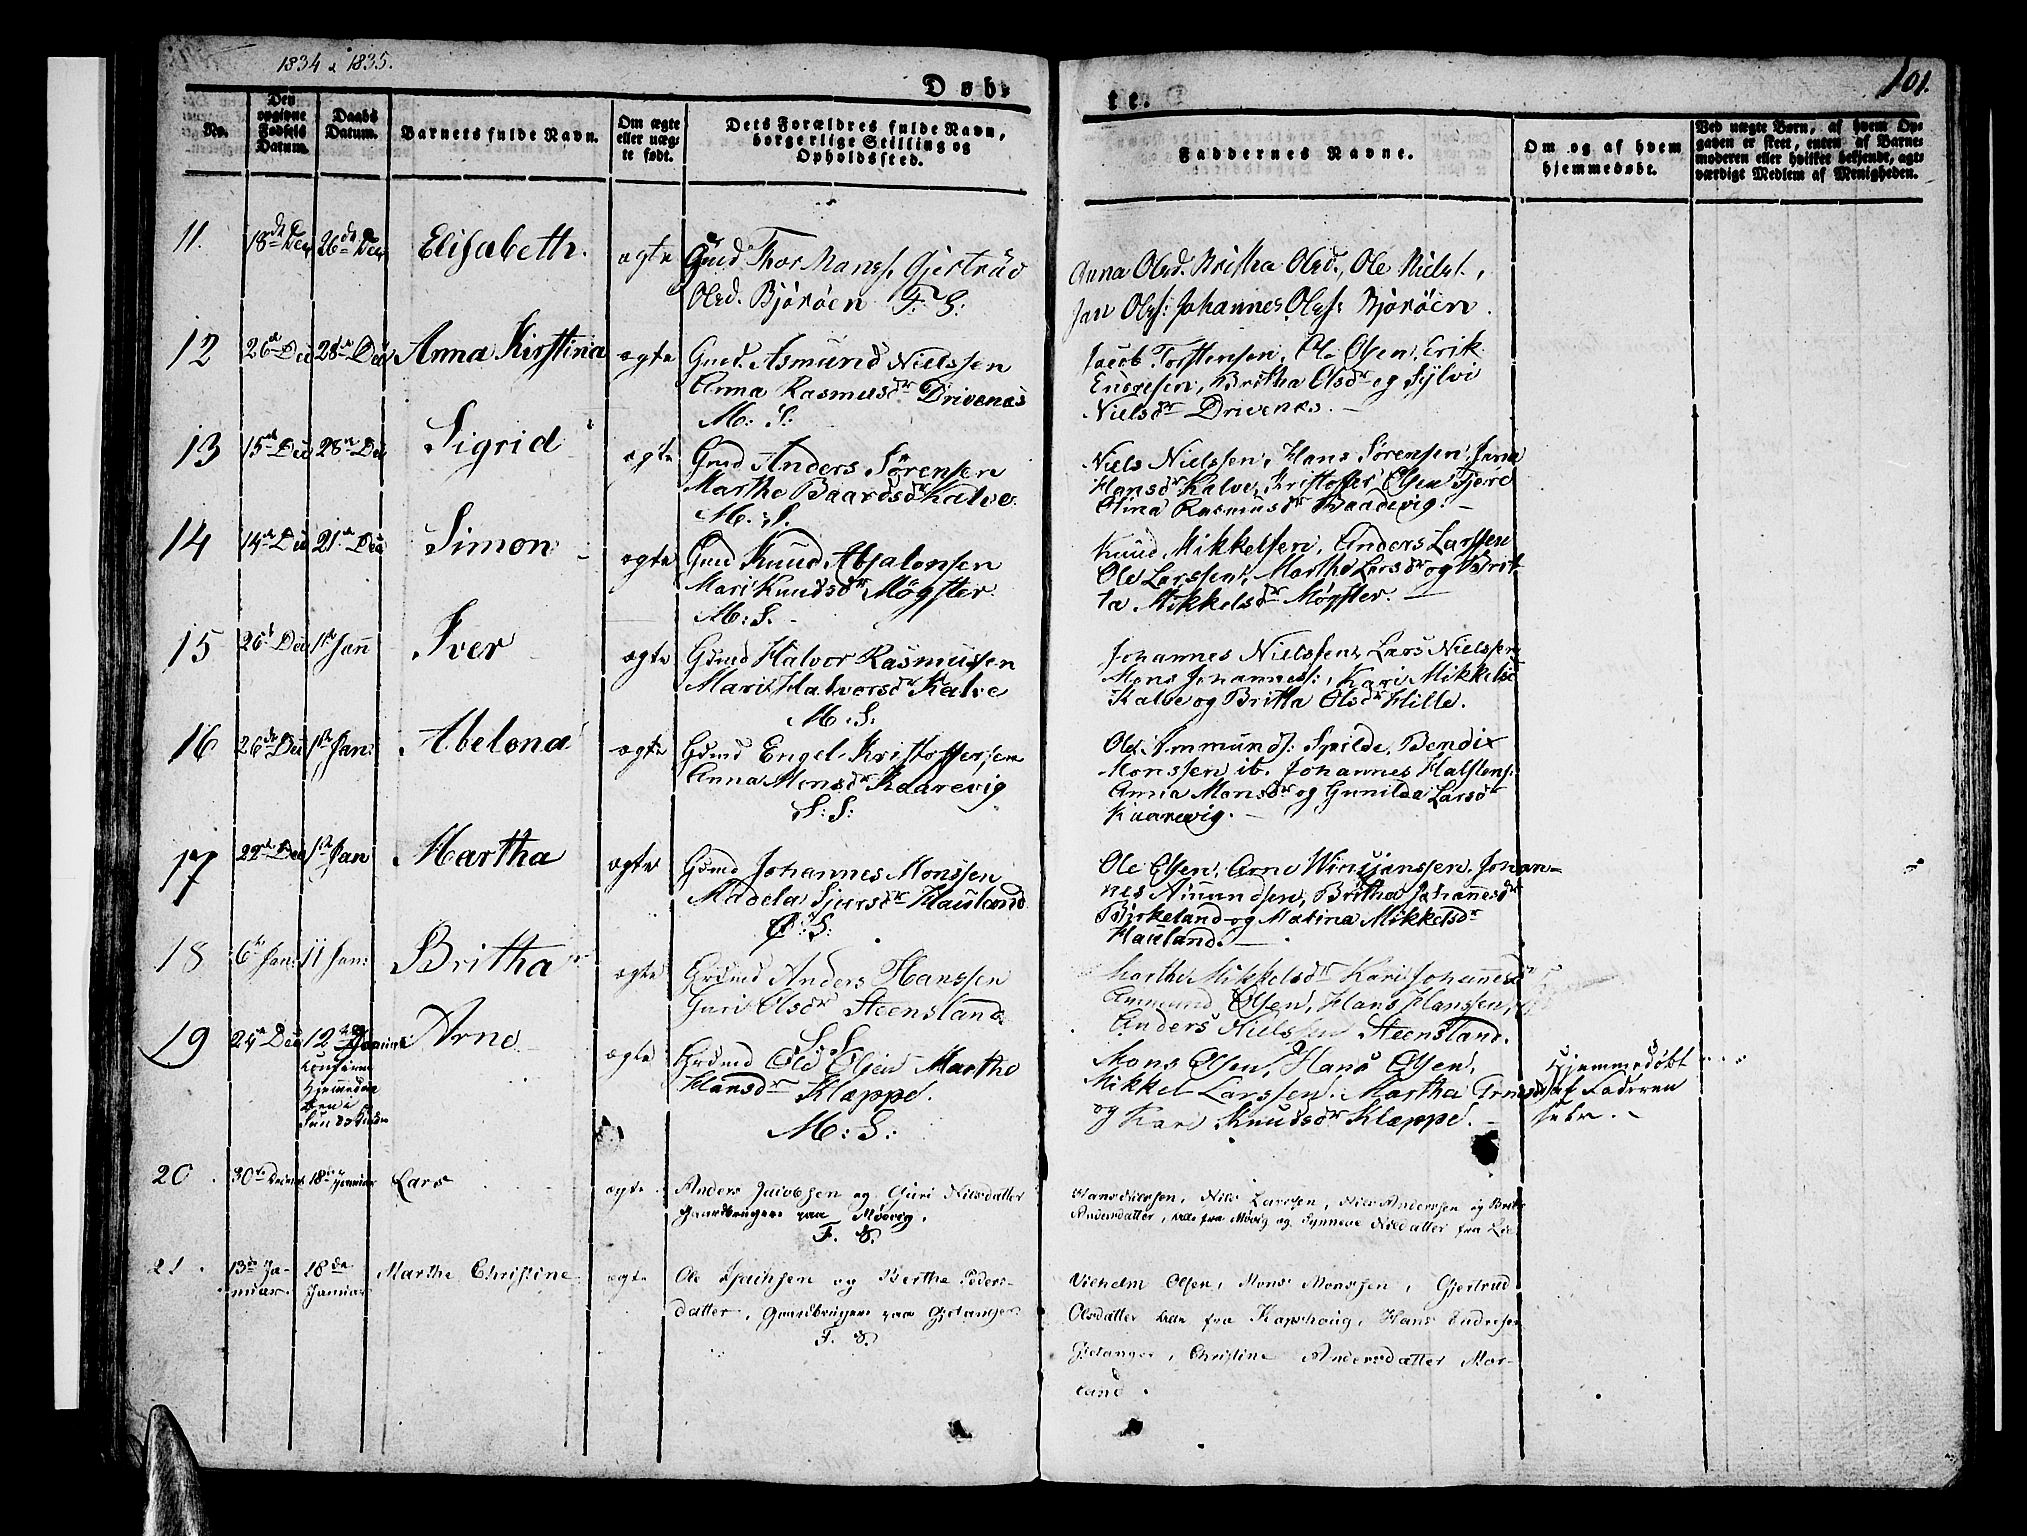 1834 & 1835.
101.
Døb-
te.
No.
Den
opgivne
Fødsels
Datum.
Daabs
Datum.
Barnets fulde Navn.
Om ægte
eller uæg-
te født.
Dets Forældres fulde Navn,
borgerlige Stilling og
Opholdssted.
Faddernes Navne.
Om og af hvem
hjemmedøbt.
Ved uægte Børn, af hvem Op-
gaven er skeet, enten af Barne-
moderen eller hvilket bekjendt, agt-
værdigt Medlem af Menigheden.
11. 18de Dec 26de Dec Elisabeth. ægte Gmd Thor Monss. Gjertrüd
Olsd. Björöen F: S:
Anna Olsd. Britha Olsd., Ole Nielss.,
Jan Olss: Johannes Olss: Björöen.
12 26de Dec 28de Dec Anna Kirstina ægte Gmd. Asmund Nielssen
Anna Rasmusdr Drivenes
M: S:
Jacob Torstensen, Ole Olsen, Erik
Endresen, Britha Olsdr og Sylvi
Nielsdr Drivenes. —
13 15de Dec 28de Dec Sigrid ægte Gmd Anders Sörensen
Marthe Baardsdr Kalve.
M: S.
Niels Nielssen, Hans Sörensen,
Hansdr Kalve, Kristoffer Olsen
Olina Rasmusdr Vaadevig. —
14 14de Dec 21de Dec Simon ægte Gmd Knud Absalonsen
Mari Knudsdr Mögster
M: S.
Knud Mikkelsen, Anders Larssen
Ole Larssen, Martha Larsdr og Brit-
ta Mikkelsdr Mögster. —
15 26de Dec 1ste Jan Iver ægte Gbmd Halvor Rasmussen
Marit Halvorsdr Kalve
M: S:
Johannes Nielssen, Lars Nielssen
Mons Johanness:, Kari Mikkelsd
Kalve og Britta Olsdr Hille.
16 26de Dec 1ste Jan: Abelona ægte Gbmd Engel Kristoffersen
Anna Monsdr Kaarevig
S: S:
Ole Ammunds: Spilde, Bendix
Monssen ib. Johannes Halstens:
Anna Monsdr og Gunilda Larsdr
Kaarevig. —
17 Dec 1ste Jan Martha ægte Gbmd Johannes Monssen
Madela Sjursdr Hauland
S:
Ole Olsen, Arne Johan-
nes Amundsen, Britha Johannesdr
Birkeland og Malina Mikkelsdr
Hauland. —
18 6te Jan: 11 Jan: Britha ægte Grbmd Anders Hanssen
Guri Olsdr Steensland
S. S.
Marthe Mikkelsdr Kari Johannesdr
Ammund Olsen, Hans Hanssen,
Anders Nielssen Steensland.
19 24de Dec 12te Januar
Hjemmedaa-
ben i
Arne ægte Grbmd Ole Olsen Martha
Hansdr Klæppe.
M: S:
Mons Olsen, Hans Olsen,
Mikkel Larssen. Martha
og Kari Knudsdr Klæppe. —
Hjemmedøbt
af Faderen
selv. —
20. 30te Decbr 18de Januar Lars ægte. Anders Jacobsen og Guri Nilsdatter
Gaardbrugere paa Møvig.
F. S.
Nils Larssen, Nils Anderssen og Brite
Andersdatter, alle fra Møvig og Synneve Nilsdatter fra
21. 13de Ja-
nuar. 18de
Januar Marthe Christine ægte Ole Isachsen og Berthe Peders-
datter, Gaardbrugere paa Gjetanger
F. S.
Vilhelm Olsen, Mons Monssen, Gjertrud
Olsdatter alle fra Kapshoug, Hans Endresen
Gjetanger, Christine Andersdatter Mor-
land.